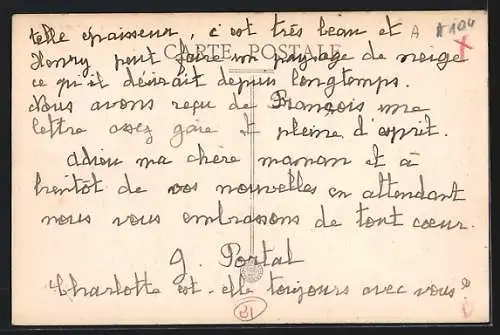 telle épaisseur, c'est très beau et A A104
CARTE POSTALE
Henry peut faire un paysage de neige X
ce qu'il désirait depuis longtemps.
Nous avons reçu de François une
lettre assez gaie et pleine d'esprit.
Adieu ma chère maman et à
bientôt de vos nouvelles en attendant
nous vous embrassons de tout cœur.
J. Portal
Charlotte est-elle toujours avec vous?